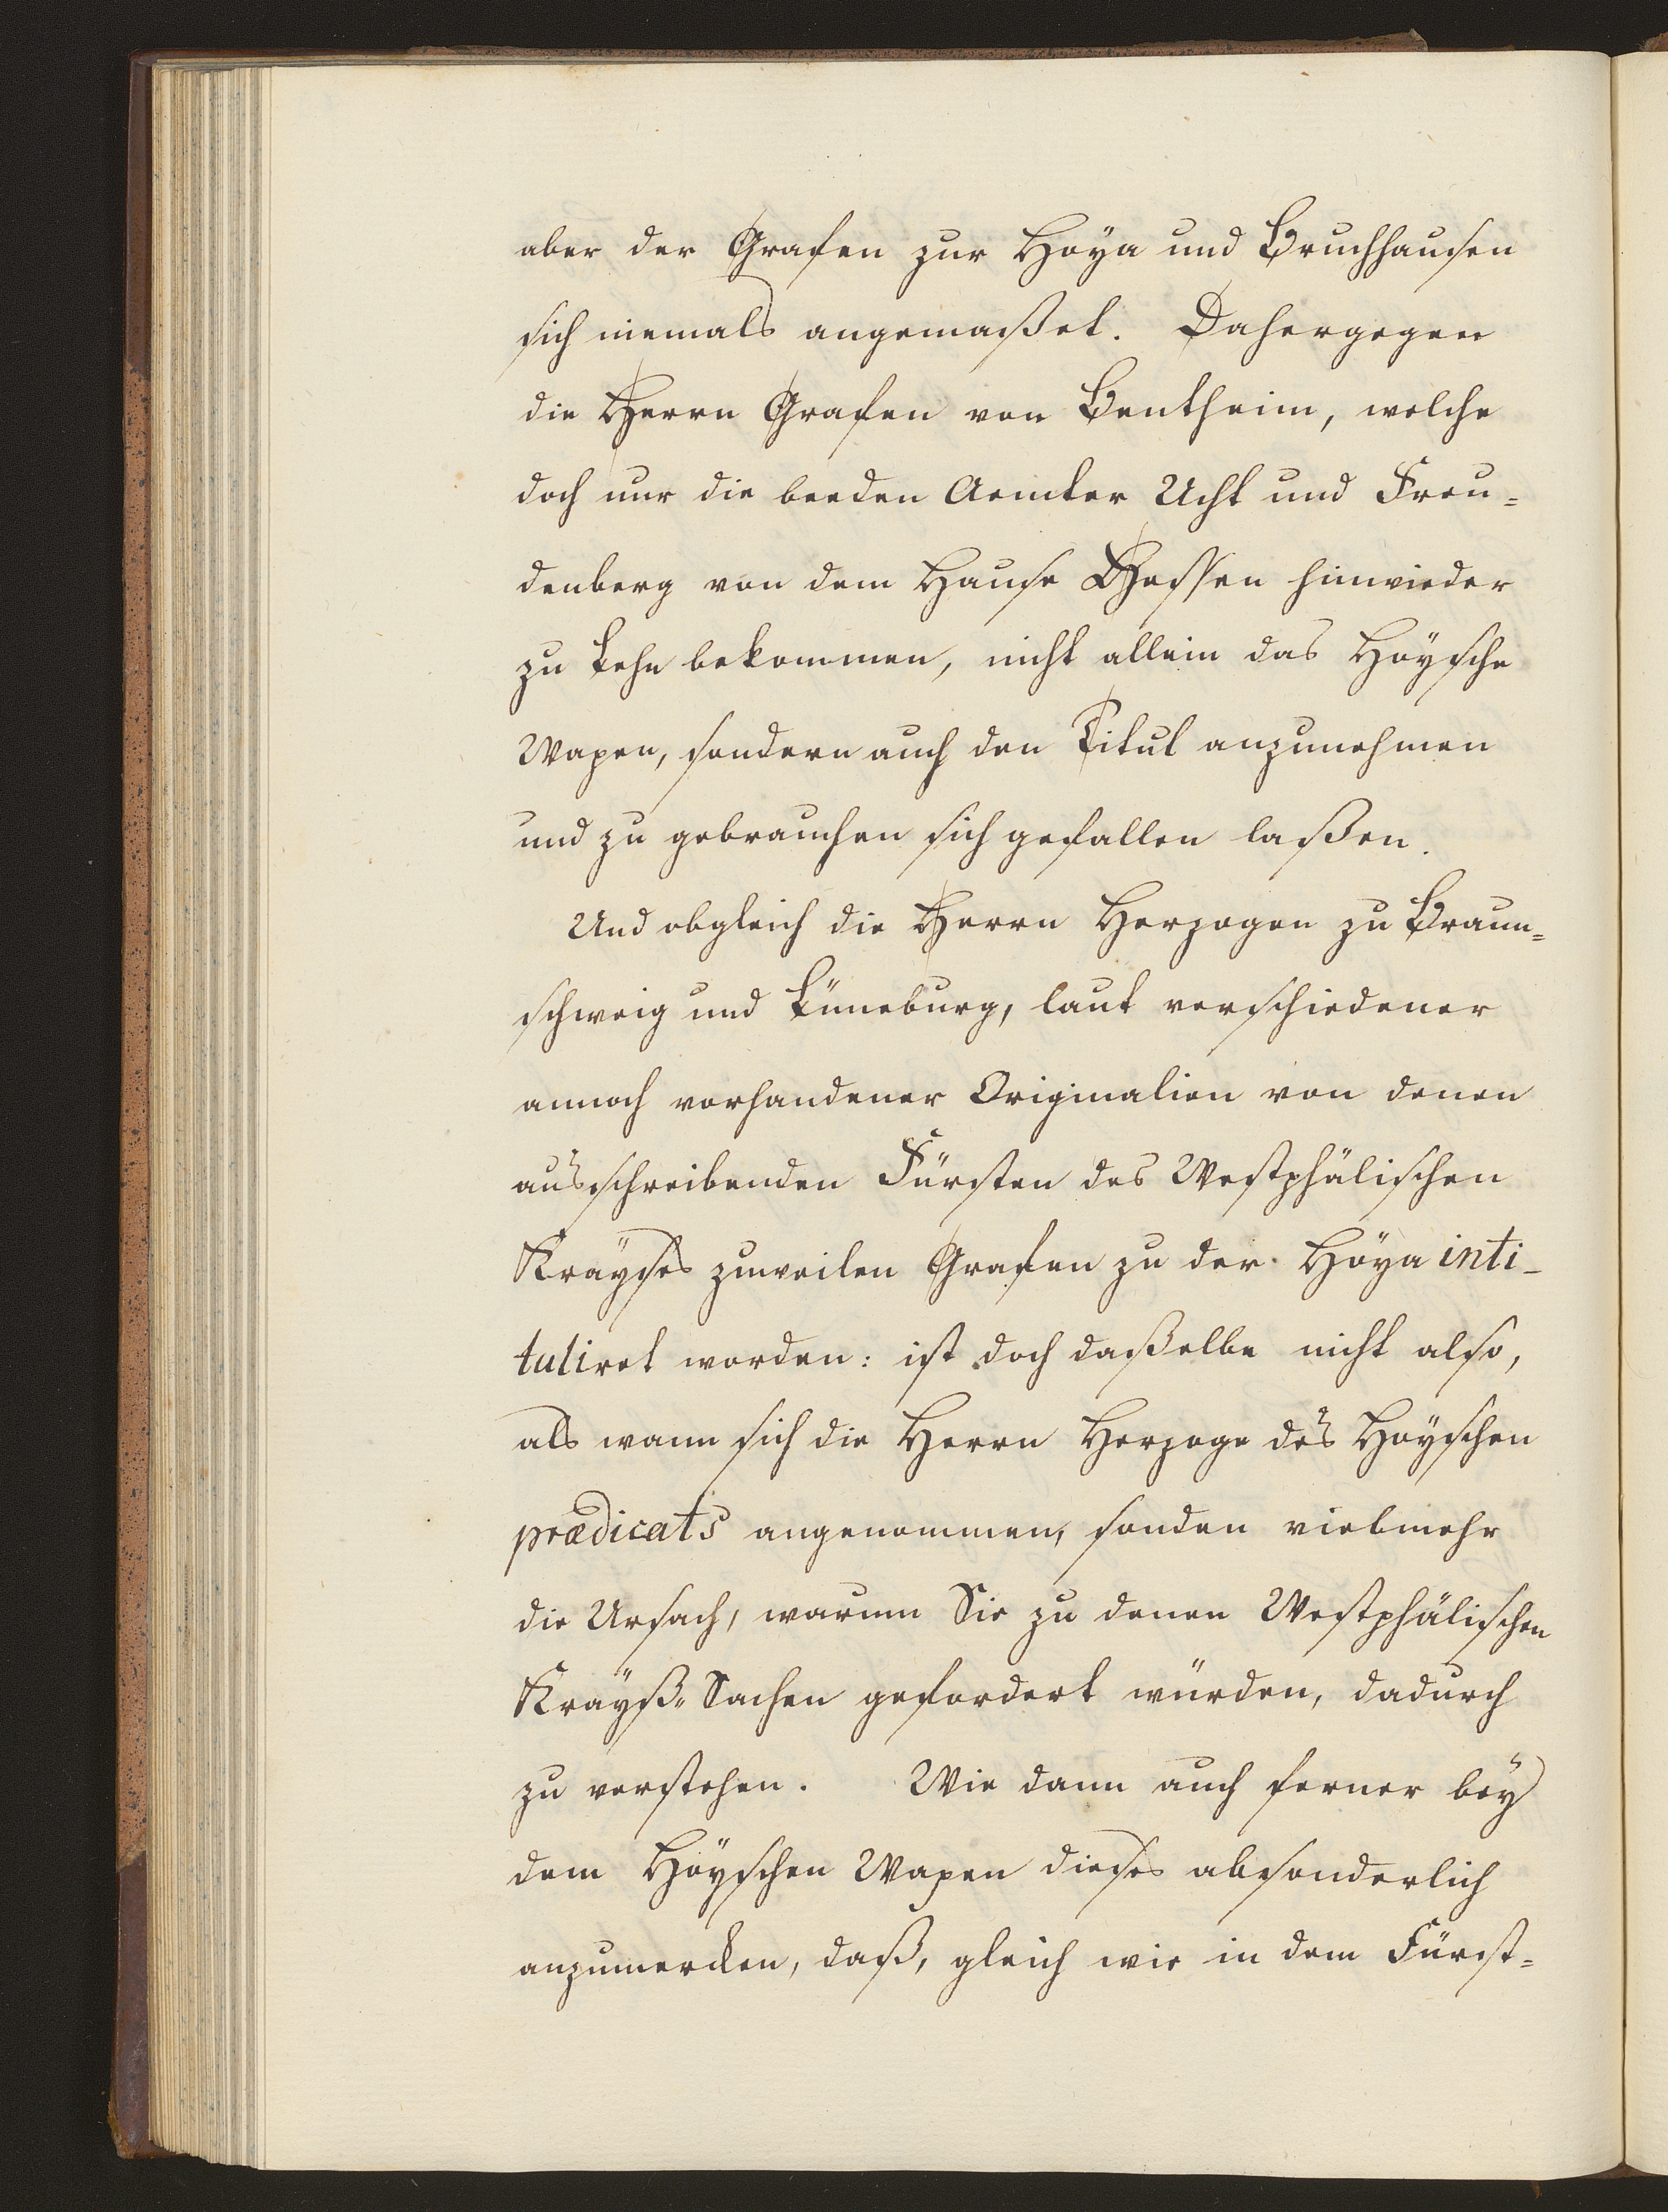 aber der Grafen zur Hoÿa und Bruchhausen
sich niemals angemaßet. Dahergegen
die Herrn Grafen von Bentheim, welche
doch nur die beeden Aemter Ucht und Freu=
denberg von dem Hause Hessen hinwieder
zu Lehn bekommen, nicht allein das Hoÿsche
Wapen, sondern auch den Titul anzunehmen
und zu gebrauchen sich gefallen laßen.
Und obgleich die Herrn Herzogen zu Braun=
schweig und Lüneburg, laut verschiedener
annoch vorhandener Originalien von denen
ausschreibenden Fürsten des Westphälischen
Kraÿses zuweilen Grafen zu der Hoÿa inti-
tuliret worden: ist doch daßelbe nicht also,
als wann sich die Herrn Herzoge des Hoÿschen
prædicats angenommen, sonden vielmehr
die Ursach, warum Sie zu denen Westphälischen
Kraÿß-Sachen gefordert würden, dadurch
zu verstehen. Wie dann auch ferner beÿ
dem Hoÿschen Wapen dieses absonderlich
anzumercken, daß, gleich wie in dem Fürst=